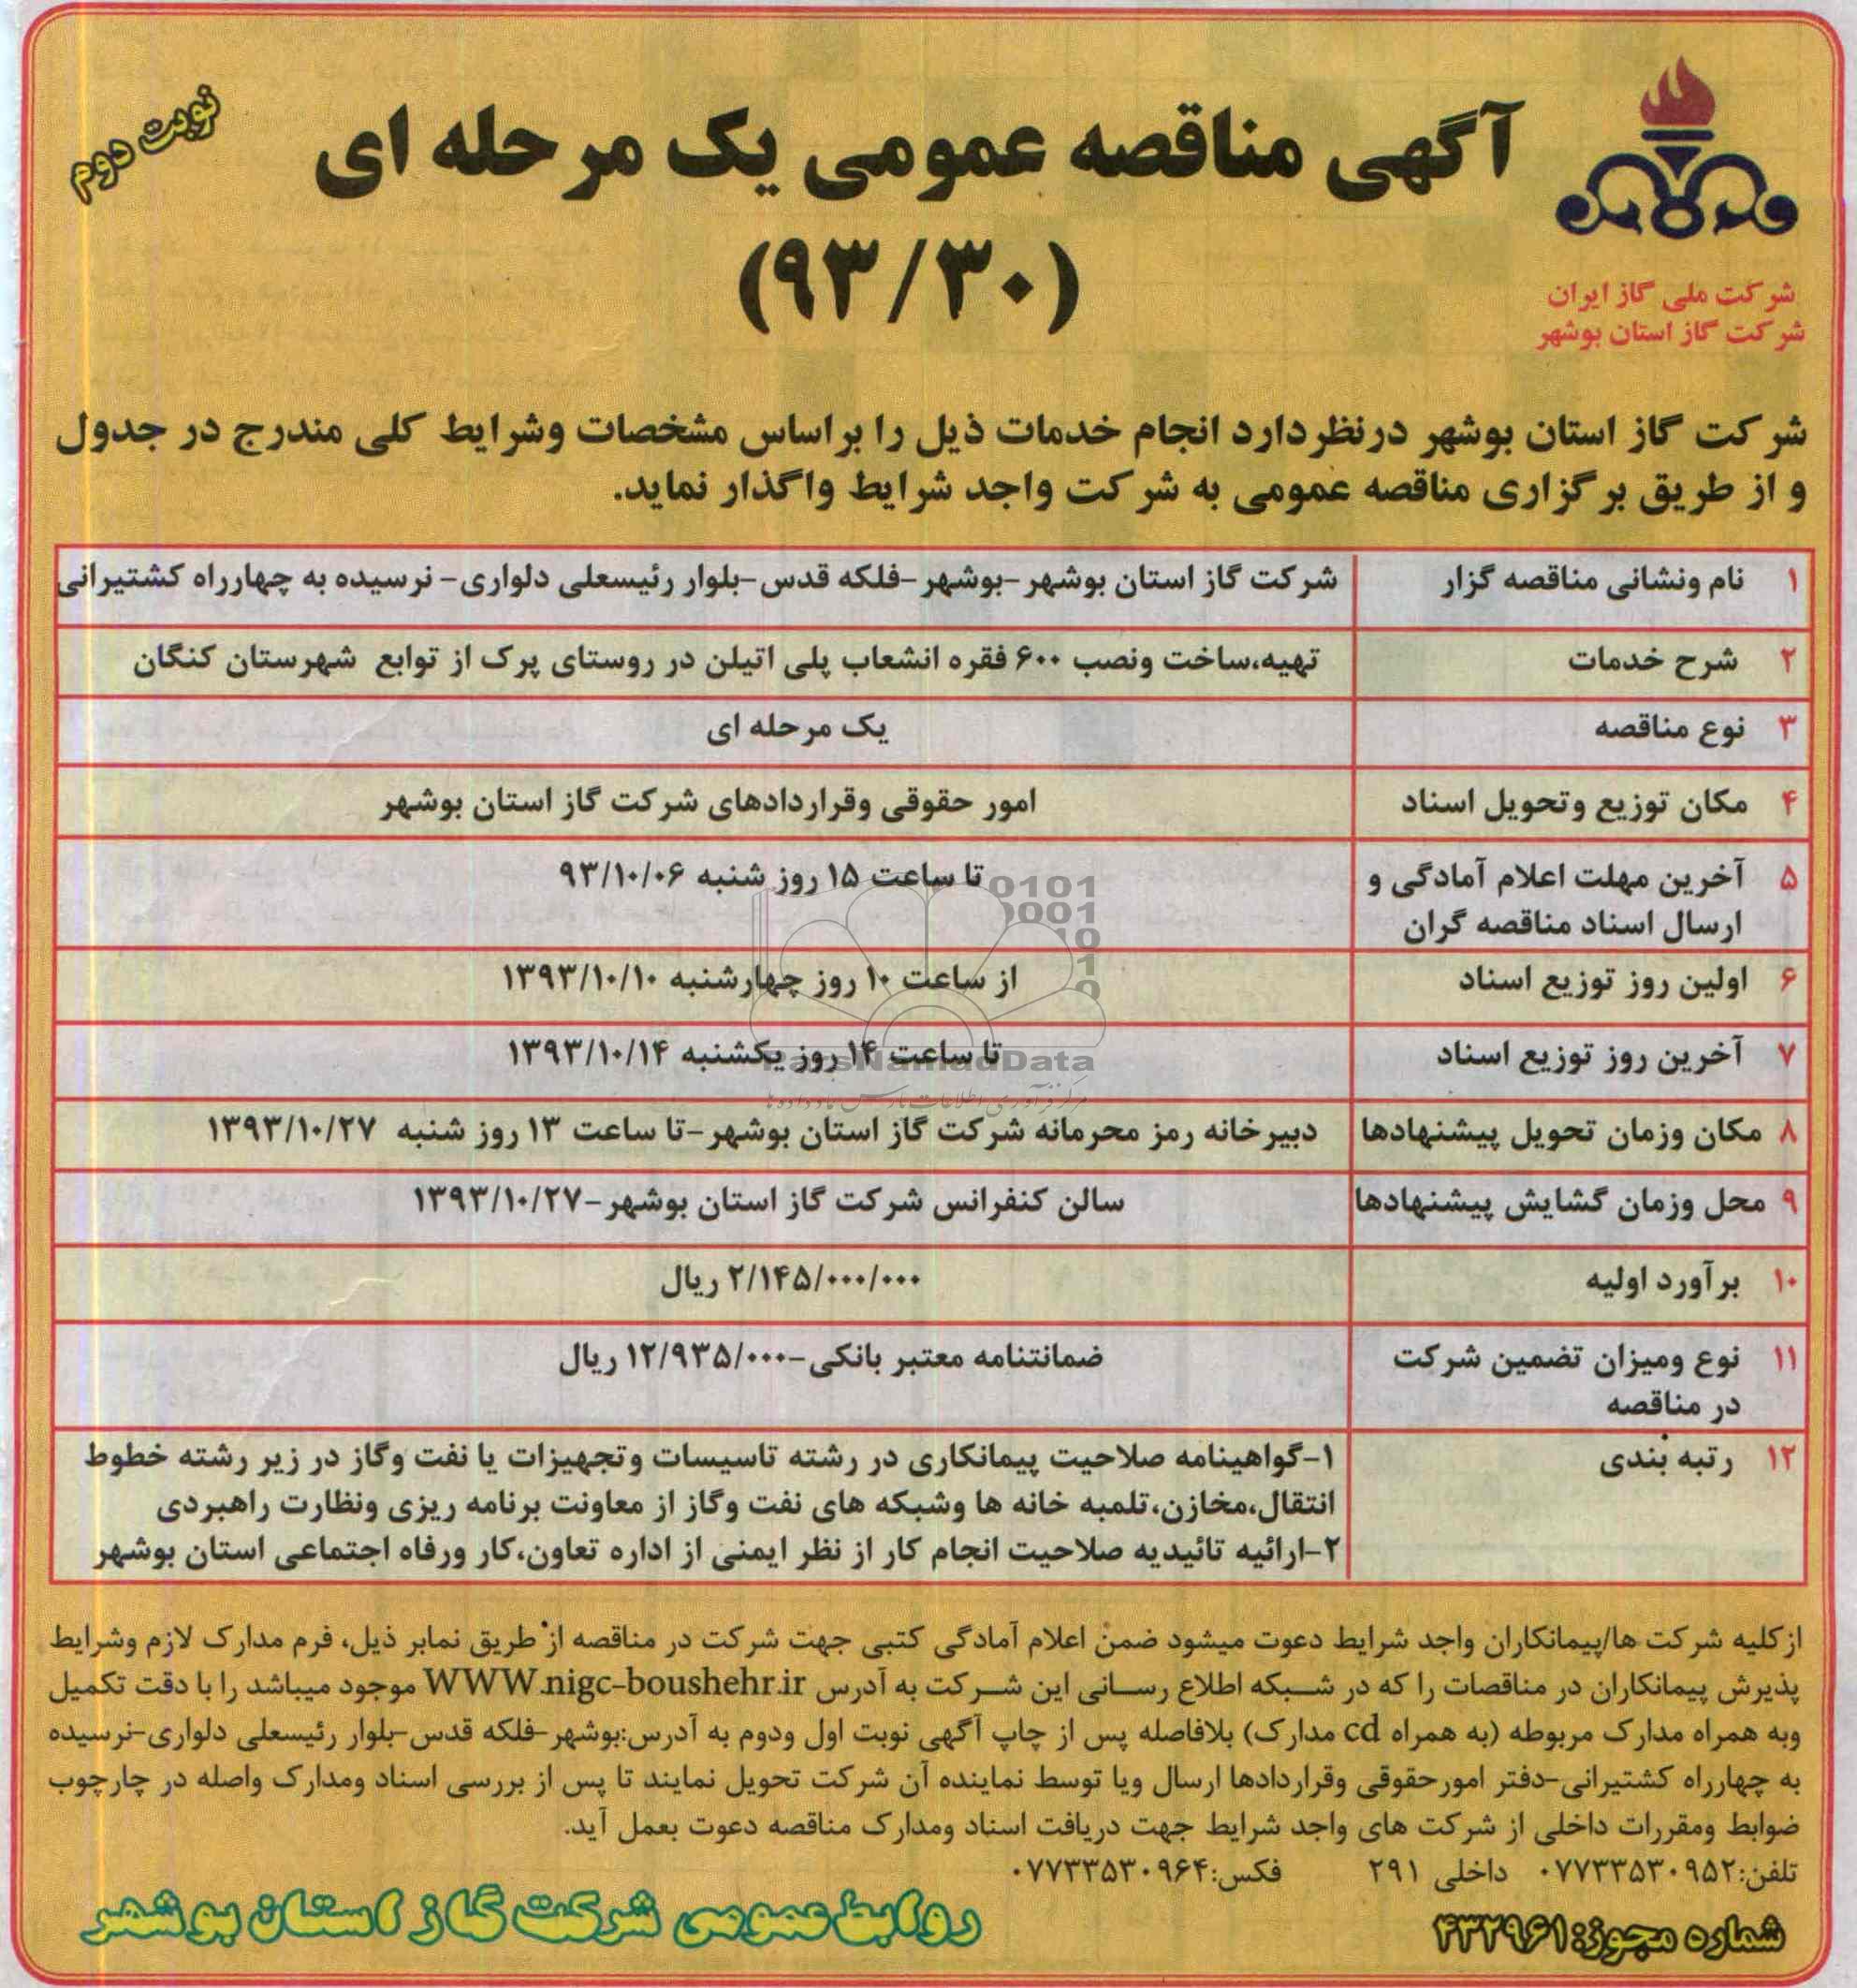 نوبت دوم
آگهی مناقصه عمومی یک مرحله ای
(۹۳/۳۰)
شرکت ملی گاز ایران
شرکت گاز استان بوشهر
شرکت گاز استان بوشهر درنظردارد انجام خدمات ذیل را براساس مشخصات وشرایط کلی مندرج در جدول
و از طریق برگزاری مناقصه عمومی به شرکت واجد شرایط واگذار نماید.
۱ نام ونشانی مناقصه گزار شرکت گاز استان بوشهر-بوشهر-فلکه قدس-بلوار رئیسعلی دلواری- نرسیده به چهارراه کشتیرانی
۲ شرح خدمات تهیه،ساخت ونصب ۶۰۰ فقره انشعاب پلی اتیلن در روستای پرک از توابع شهرستان کنگان
۳ نوع مناقصه یک مرحله ای
۴ مکان توزیع وتحویل اسناد امور حقوقی وقراردادهای شرکت گاز استان بوشهر
۵ آخرین مهلت اعلام آمادگی و تا ساعت ۱۵ روز شنبه ۹۳/۱۰/۰۶
ارسال اسناد مناقصه گران
۶ اولین روز توزیع اسناد از ساعت ۱۰ روز چهارشنبه ۱۳۹۳/۱۰/۱۰
۷ آخرین روز توزیع اسناد تا ساعت ۱۴ روز یکشنبه ۱۳۹۳/۱۰/۱۴
۸ مکان وزمان تحویل پیشنهادها دبیرخانه رمز محرمانه شرکت گاز استان بوشهر-تا ساعت ۱۳ روز شنبه ۱۳۹۳/۱۰/۲۷
۹ محل وزمان گشایش پیشنهادها سالن کنفرانس شرکت گاز استان بوشهر-۱۳۹۳/۱۰/۲۷
۱۰ برآورد اولیه ۲/۱۴۵/۰۰۰/۰۰۰ ریال
۱۱ نوع ومیزان تضمین شرکت ضمانتنامه معتبر بانکی-۱۲/۹۳۵/۰۰۰ ریال
در مناقصه
۱۲ رتبه بندی ۱-گواهینامه صلاحیت پیمانکاری در رشته تاسیسات وتجهیزات یا نفت وگاز در زیر رشته خطوط
انتقال،مخازن،تلمبه خانه ها وشبکه های نفت وگاز از معاونت برنامه ریزی ونظارت راهبردی
۲-ارائیه تائیدیه صلاحیت انجام کار از نظر ایمنی از اداره تعاون،کار ورفاه اجتماعی استان بوشهر
ازکلیه شرکت ها/پیمانکاران واجد شرایط دعوت میشود ضمن اعلام آمادگی کتبی جهت شرکت در مناقصه از طریق نمابر ذیل، فرم مدارک لازم وشرایط
پذیرش پیمانکاران در مناقصات را که در شبکه اطلاع رسانی این شرکت به آدرس WWW.nigc-boushehr.ir موجود میباشد را با دقت تکمیل
وبه همراه مدارک مربوطه (به همراه cd مدارک) بلافاصله پس از چاپ آگهی نوبت اول ودوم به آدرس:بوشهر-فلکه قدس-بلوار رئیسعلی دلواری-نرسیده
به چهارراه کشتیرانی-دفتر امورحقوقی وقراردادها ارسال ویا توسط نماینده آن شرکت تحویل نمایند تا پس از بررسی اسناد ومدارک واصله در چارچوب
ضوابط ومقررات داخلی از شرکت های واجد شرایط جهت دریافت اسناد ومدارک مناقصه دعوت بعمل آید.
تلفن:۰۷۷۳۳۵۳۰۹۵۲ داخلی ۲۹۱ فکس:۰۷۷۳۳۵۳۰۹۶۴
شماره مجوز:۴۳۲۹۶۱
روابط عمومی شرکت گاز استان بوشهر
ParsNamadData